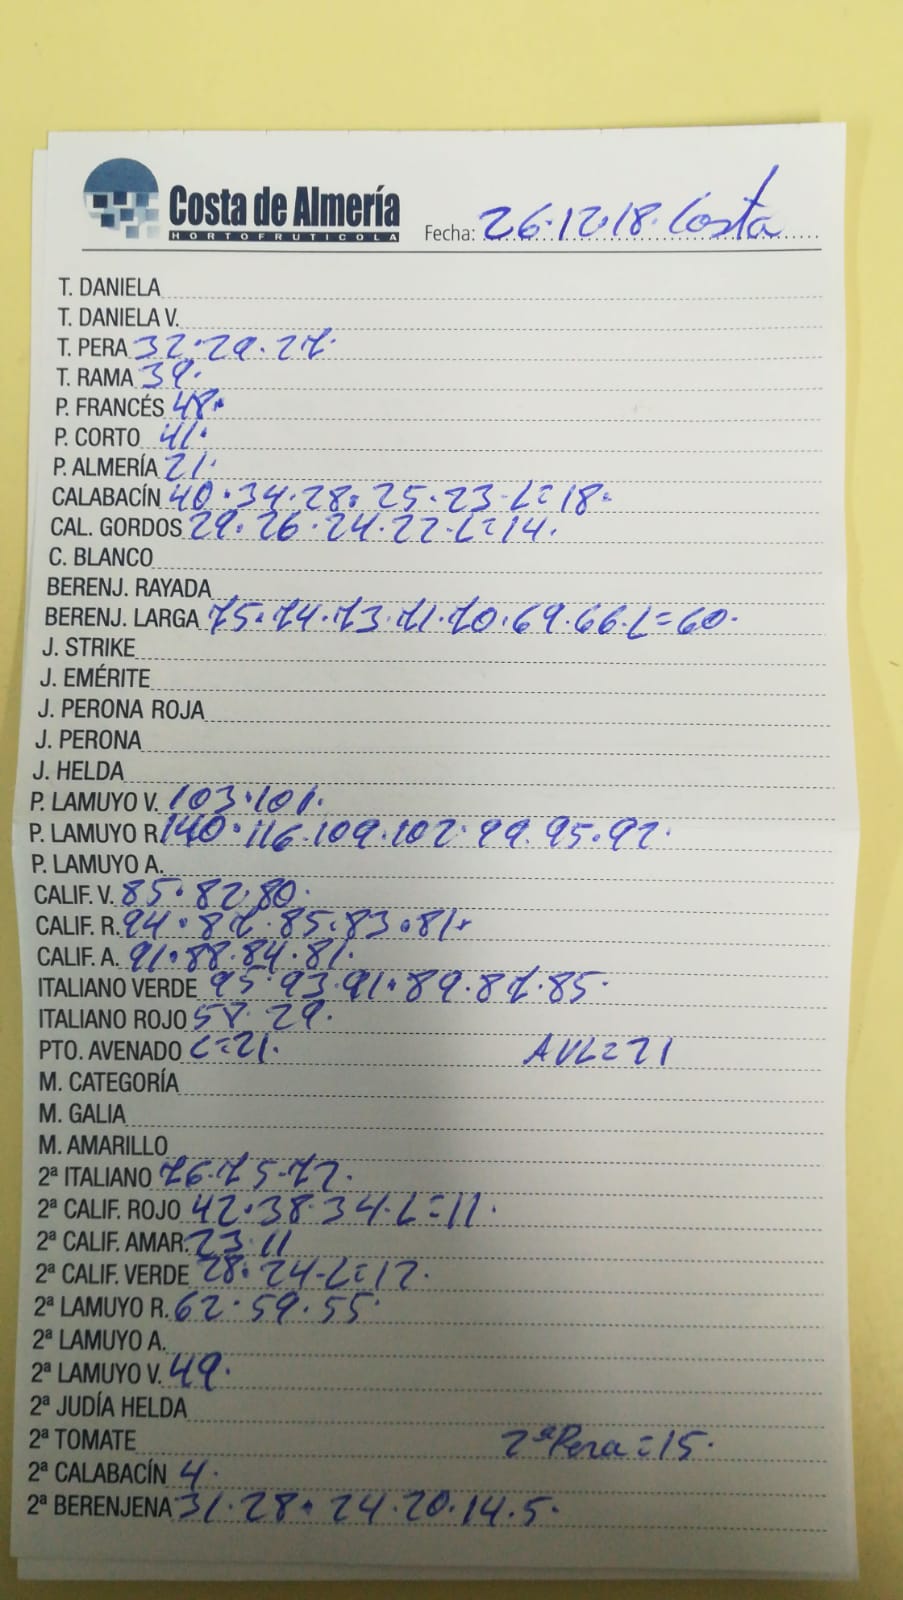 Costa de Almería
HORTOFRUTICOLA
Fecha: 26·12·18· Costa
T. DANIELA
T. DANIELA V.
T. PERA 32·29·27·
T. RAMA 39·
P. FRANCÉS 48·
P. CORTO 41·
P. ALMERÍA 21·
CALABACÍN 40·34·28·25·23-L=18·
CAL. GORDOS 29·26·24·22-L=14·
C. BLANCO
BERENJ. RAYADA
BERENJ. LARGA 75·74·73·71·70·69·66·L=60·
J. STRIKE
J. EMÉRITE
J. PERONA ROJA
J. PERONA
J. HELDA
P. LAMUYO V. 103·101·
P. LAMUYO R. 140·116·109·102·99·95·92·
P. LAMUYO A.
CALIF. V. 85·82·80·
CALIF. R. 94·87·85·83·81·
CALIF. A. 91·88·84·81·
ITALIANO VERDE 95·93·91·89·87·85·
ITALIANO ROJO 29·
PTO. AVENADO L=21· AVL=21
M. CATEGORÍA
M. GALIA
M. AMARILLO
2ª ITALIANO 76·75-72·
2ª CALIF. ROJO 42·38·34·L=11·
2ª CALIF. AMAR. 23·11
2ª CALIF. VERDE 28·24-L=12·
2ª LAMUYO R. 62·59·55·
2ª LAMUYO A.
2ª LAMUYO V. 49·
2ª JUDÍA HELDA
2ª TOMATE 2ª Pera=15·
2ª CALABACÍN 4·
2ª BERENJENA 31·28·24·20·14·5·